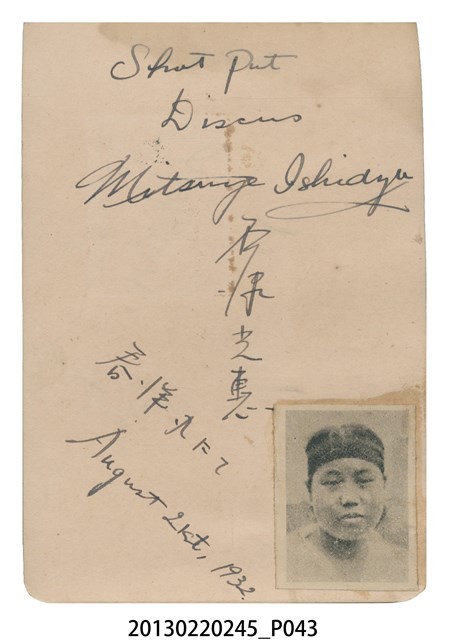 Shot Put
Discus
Mitsuye Ishidzu
石津光惠
春洋丸にて
August 21st, 1932.
20130220245_P043